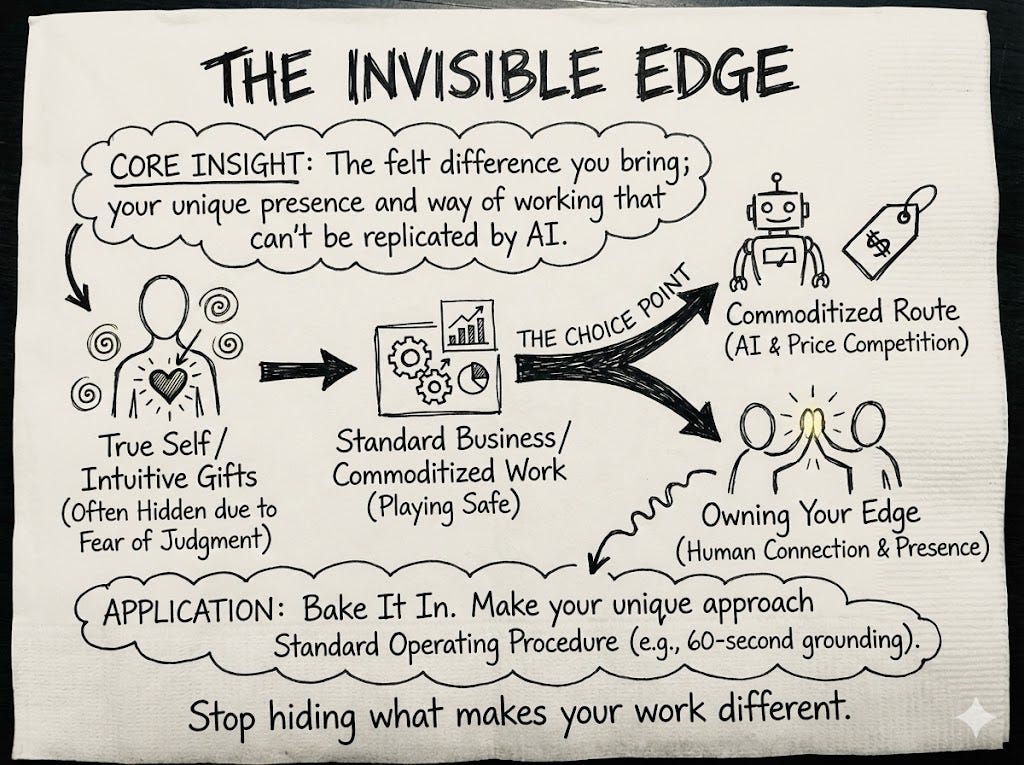 THE INVISIBLE EDGE
CORE INSIGHT: The felt difference you bring;
your unique presence and way of working that
can't be replicated by AI.
THE CHOICE POINT
$
Commoditized Route
(AI & Price Competition)
True Self/
Intuitive Gifts
(Often Hidden due to
Fear of Judgment)
Standard Business/
Commoditized Work
(Playing Safe)
Owning Your Edge
(Human Connection & Presence)
APPLICATION: Bake It In. Make your unique approach
Standard Operating Procedure (e.g., 60-second grounding).
Stop hiding what makes your work different.